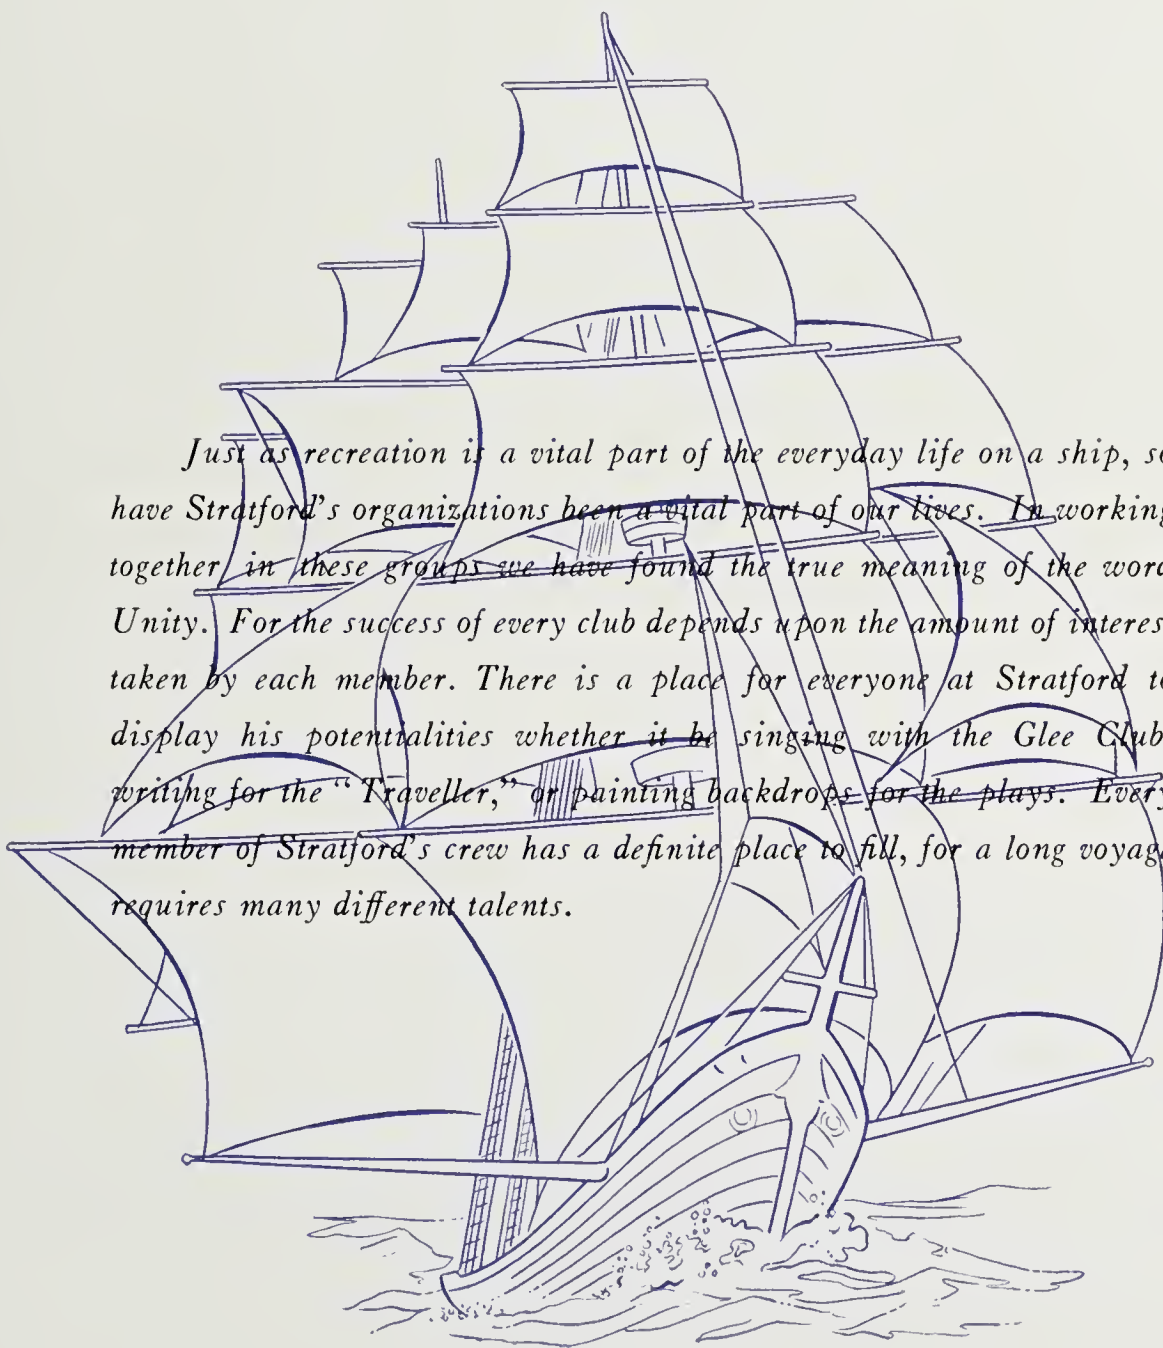 Just as recreation is a vital part of the everyday life on a ship, so
have Stratford's organizations been a vital part of our lives. In working
together in these groups we have found the true meaning of the word
Unity. For the success of every club depends upon the amount of interes
taken by each member. There is a place for everyone at Stratford to
display his potentialities whether it be singing with the Glee Club
writing for the “Traveller,” or painting backdrops for the plays. Every
member of Stratford's crew has a definite place to fill, for a long voyag
requires many different talents.